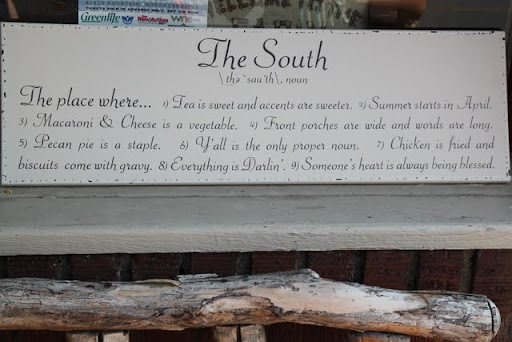 Greenlife
The South
\ thə ˈsau̇th \, noun
The place where... 1) Tea is sweet and accents are sweeter. 2) Summer starts in April.
3) Macaroni & Cheese is a vegetable. 4) Front porches are wide and words are long.
5) Pecan pie is a staple. 6) Y'all is the only proper noun. 7) Chicken is fried and
biscuits come with gravy. 8) Everything is Darlin'. 9) Someone's heart is always being blessed.